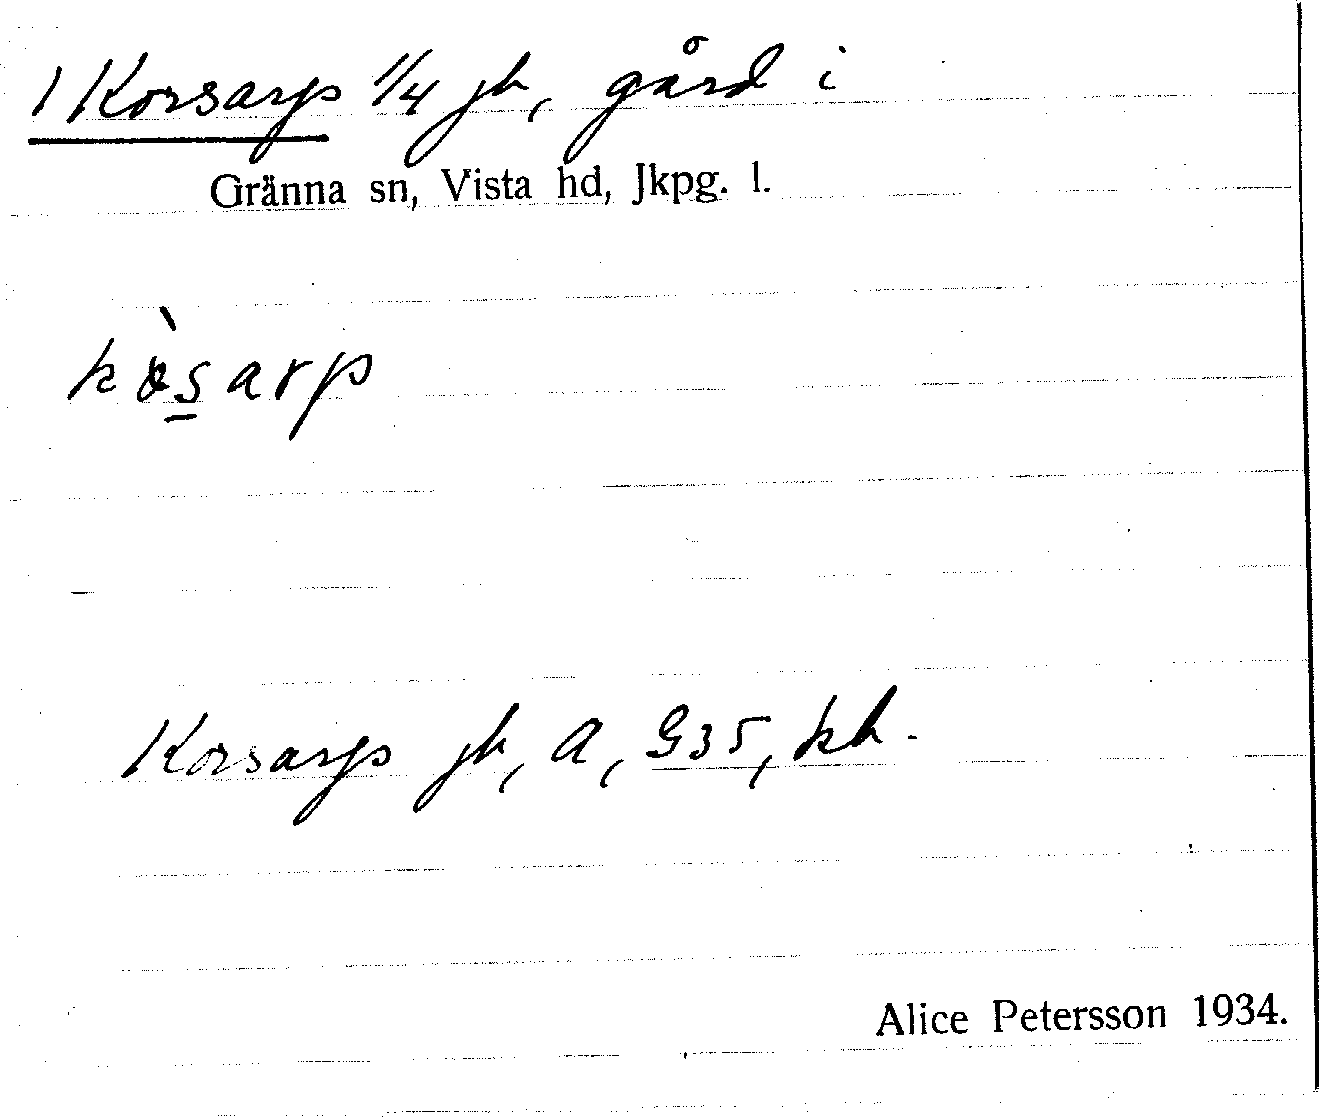 1 Korsarp 1/4 jb, gård i
Gränna sn, Vista hd, Jkpg. l.
kòs̲arp
Korsarp jb, A, G35, kb.
Alice Petersson 1934.